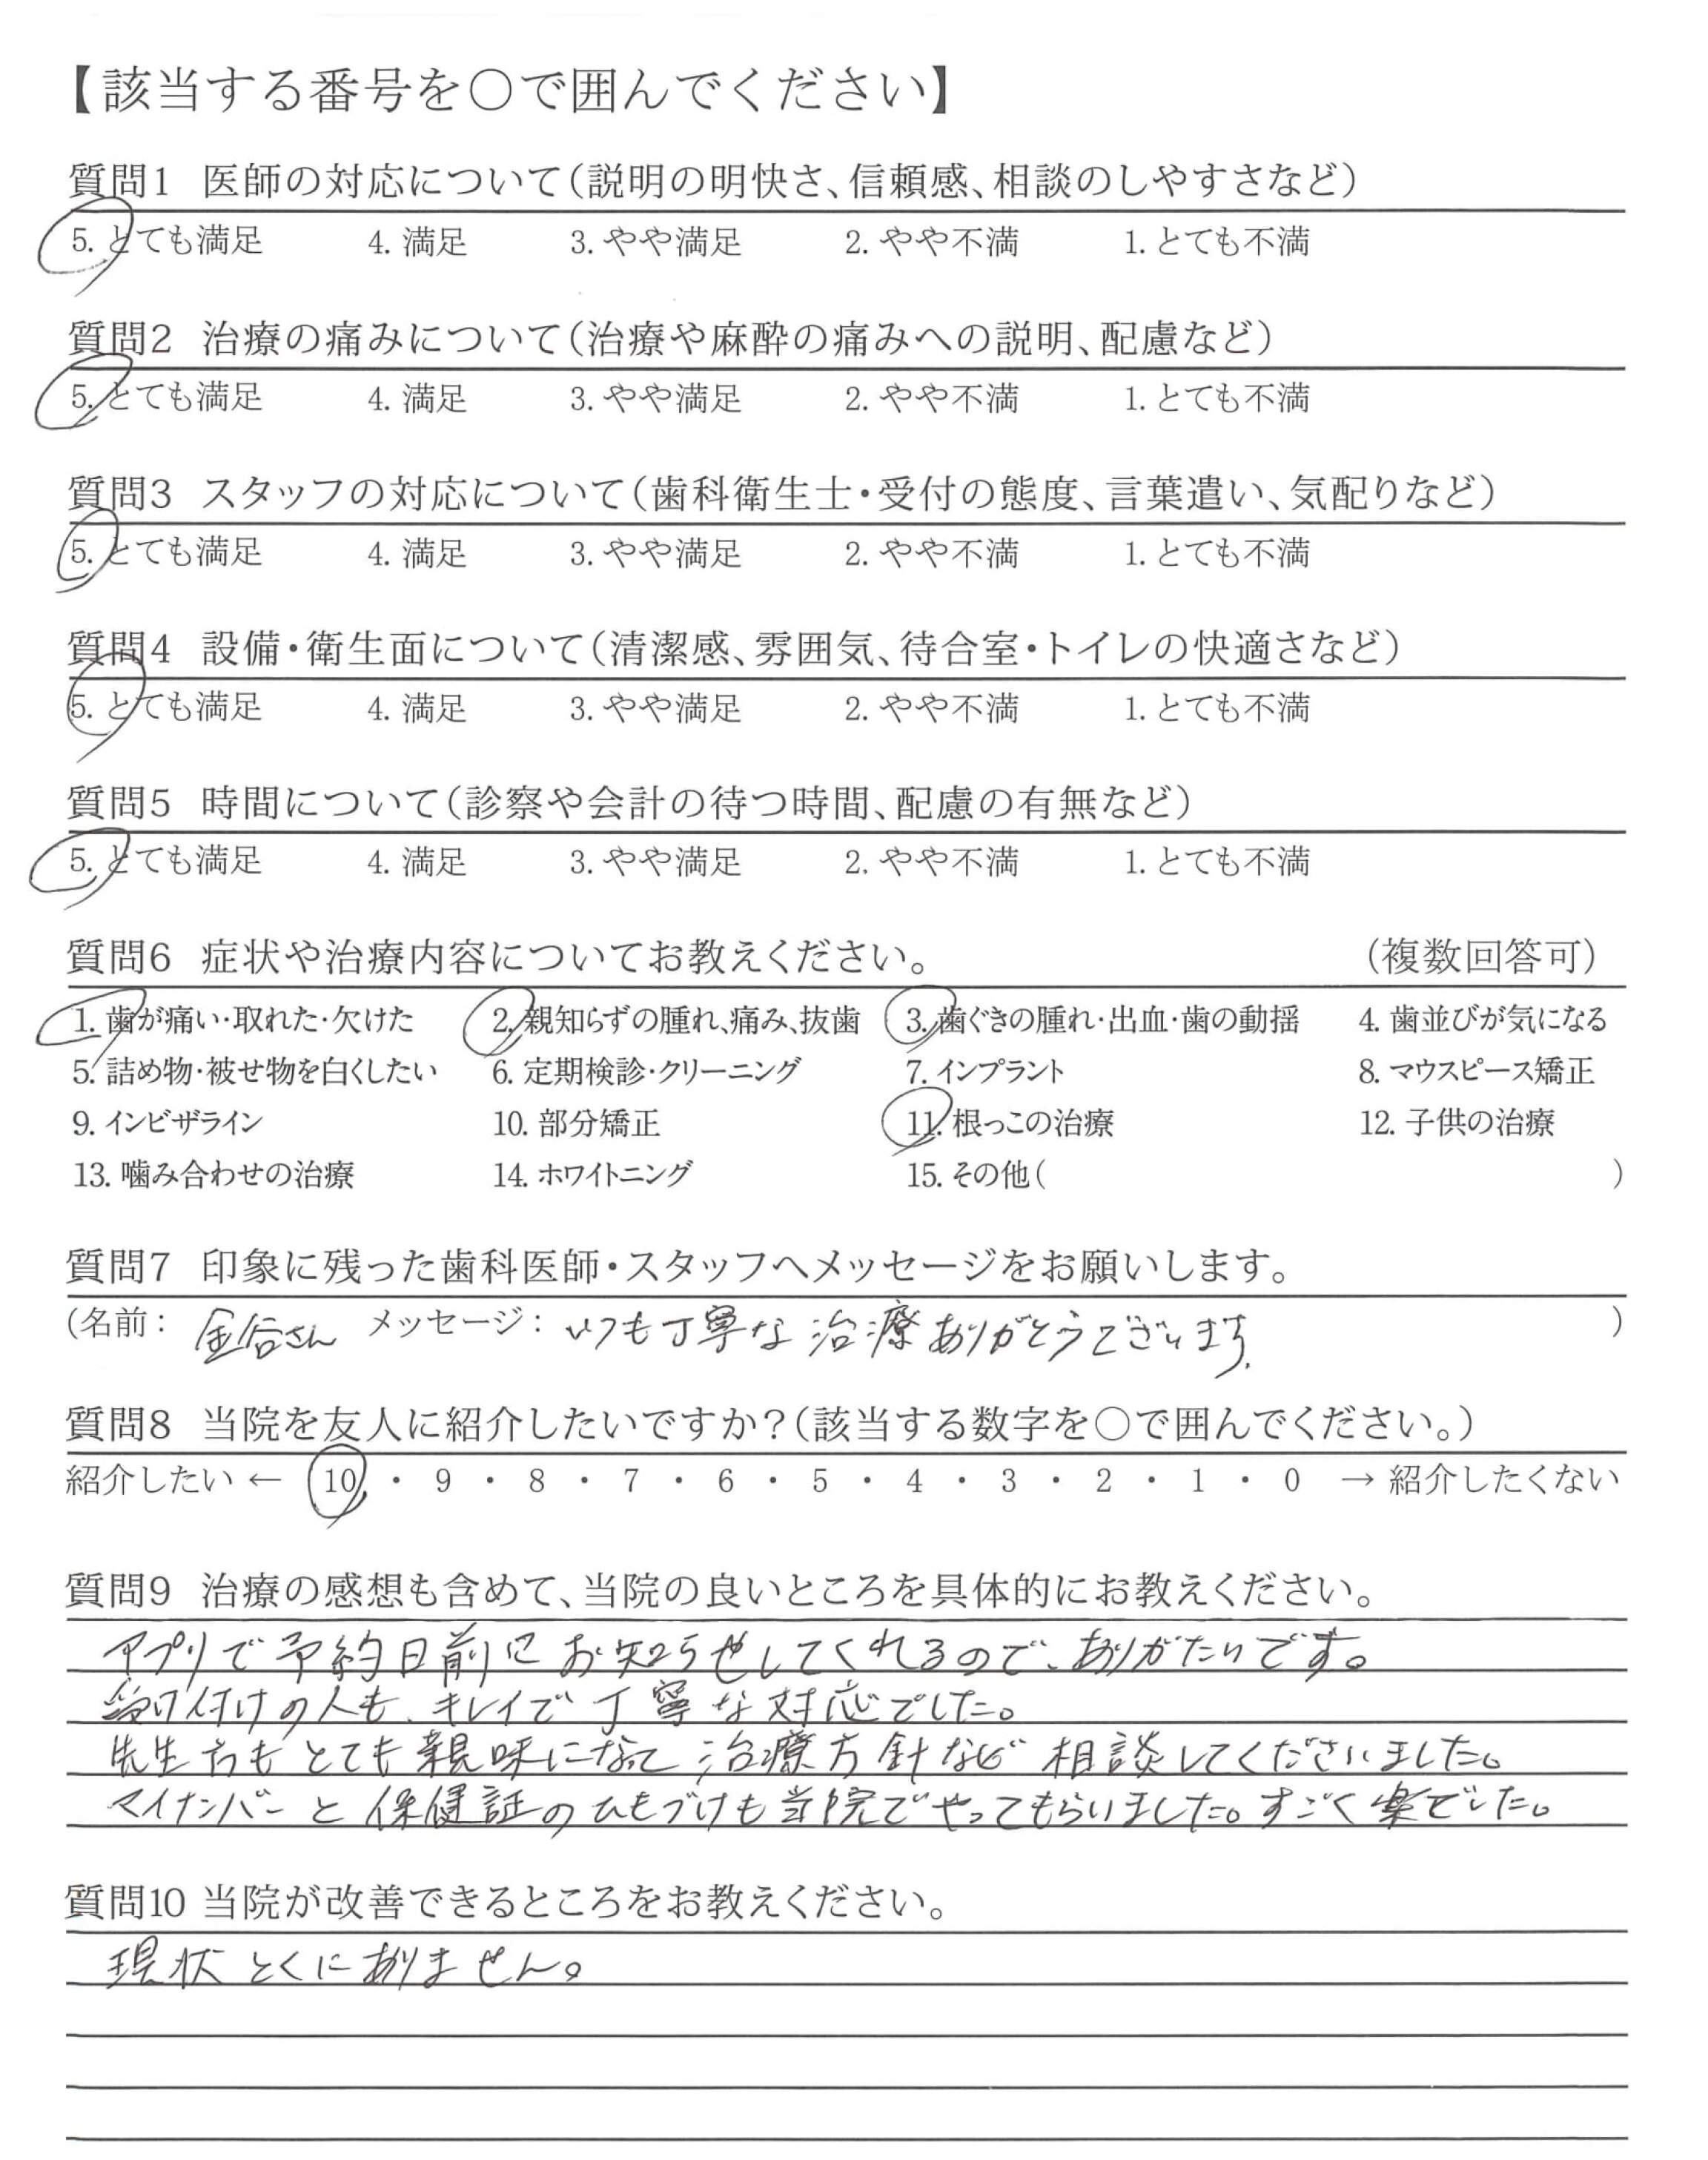 【該当する番号を○で囲んでください】
質問1 医師の対応について（説明の明快さ、信頼感、相談のしやすさなど）
5. とても満足 4. 満足 3. やや満足 2. やや不満 1. とても不満
質問2 治療の痛みについて（治療や麻酔の痛みへの説明、配慮など）
5. とても満足 4. 満足 3. やや満足 2. やや不満 1. とても不満
質問3 スタッフの対応について（歯科衛生士・受付の態度、言葉遣い、気配りなど）
5. とても満足 4. 満足 3. やや満足 2. やや不満 1. とても不満
質問4 設備・衛生面について（清潔感、雰囲気、待合室・トイレの快適さなど）
5. とても満足 4. 満足 3. やや満足 2. やや不満 1. とても不満
質問5 時間について（診察や会計の待つ時間、配慮の有無など）
5. とても満足 4. 満足 3. やや満足 2. やや不満 1. とても不満
質問6 症状や治療内容についてお教えください。 （複数回答可）
1. 歯が痛い・取れた・欠けた 2. 親知らずの腫れ、痛み、抜歯 3. 歯ぐきの腫れ・出血・歯の動揺 4. 歯並びが気になる
5. 詰め物・被せ物を白くしたい 6. 定期検診・クリーニング 7. インプラント 8. マウスピース矯正
9. インビザライン 10. 部分矯正 11. 根っこの治療 12. 子供の治療
13. 噛み合わせの治療 14. ホワイトニング 15. その他（ ）
質問7 印象に残った歯科医師・スタッフへメッセージをお願いします。
（名前： 金谷さん メッセージ： いつも丁寧な治療ありがとうございます。 ）
質問8 当院を友人に紹介したいですか？（該当する数字を○で囲んでください。）
紹介したい ← 10 ・ 9 ・ 8 ・ 7 ・ 6 ・ 5 ・ 4 ・ 3 ・ 2 ・ 1 ・ 0 → 紹介したくない
質問9 治療の感想も含めて、当院の良いところを具体的にお教えください。
アプリで予約日前にお知らせしてくれるので、ありがたいです。
受け付けの人も、キレイで丁寧な対応でした。
先生方もとても親味になって治療方針など相談してくださいました。
マイナンバーと保健証のひもづけも当院でやってもらいました。すごく楽でした。
質問10 当院が改善できるところをお教えください。
現状とくにありません。